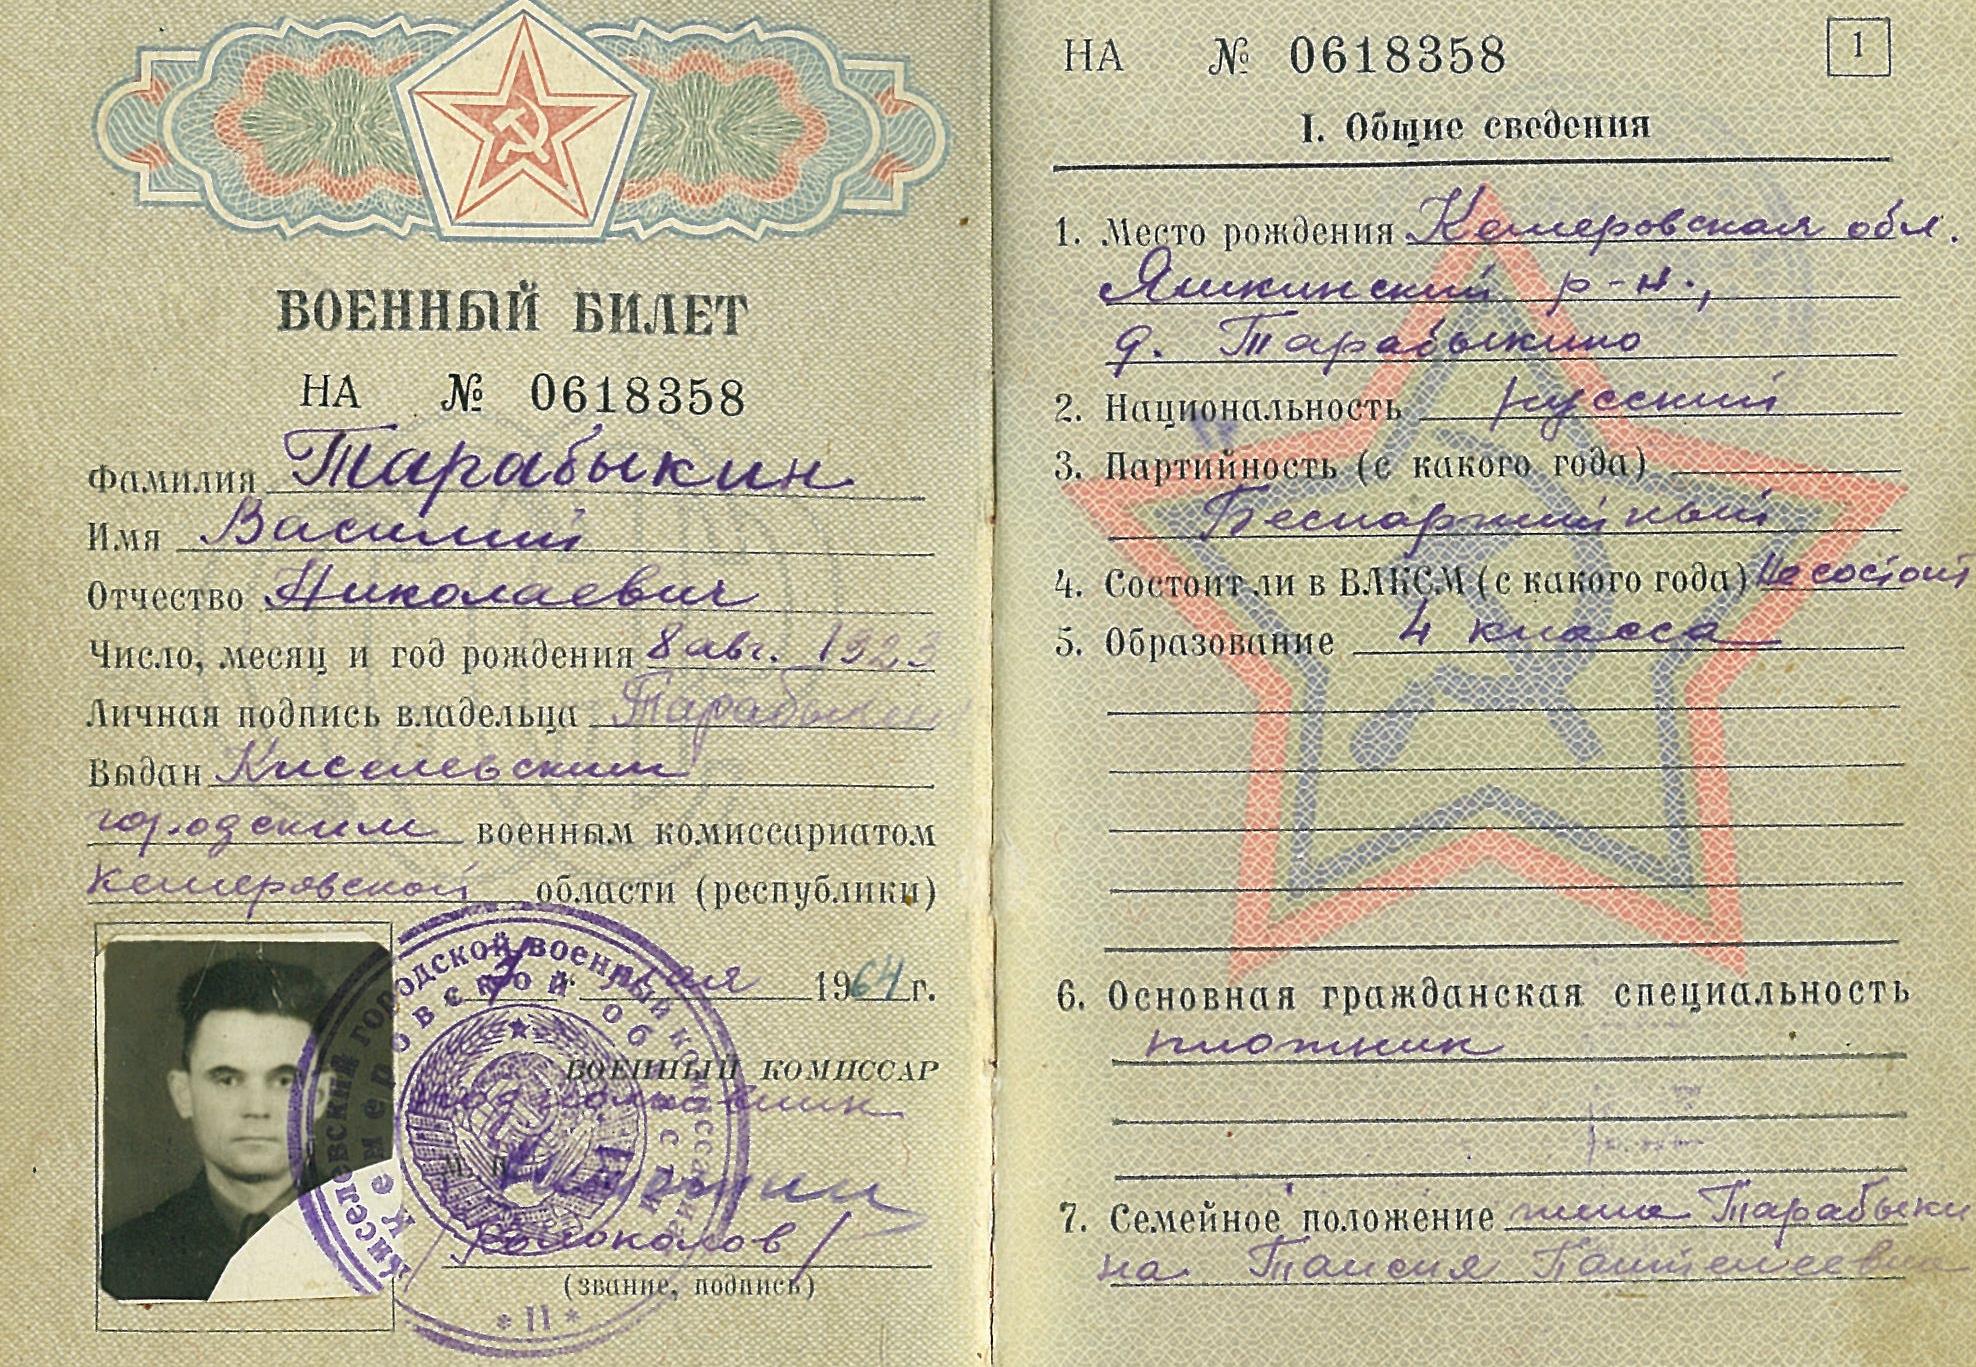 ВОЕННЫЙ БИЛЕТ
НА № 0618358
Фамилия Тарабыкин
Имя Василий
Отчество Николаевич
Число, месяц и год рождения 8 авг. 1923
Личная подпись владельца Тарабыкин
Выдан Киселевским
городским военным комиссариатом
Кемеровской области (республики)
3 мая 1964 г.
ВОЕННЫЙ КОМИССАР
подполковник
М. П.
/Колоколов/
(звание, подпись)
Киселевский городской военный комиссариат
Кемеровской области
* 11 *
НА № 0618358
1
I. Общие сведения
1. Место рождения Кемеровская обл.
Яшкинский р-н.,
д. Тарабыкино
2. Национальность русский
3. Партийность (с какого года)
Беспартийный
4. Состоит ли в ВЛКСМ (с какого года) Не состоит
5. Образование 4 класса
6. Основная гражданская специальность
плотник
7. Семейное положение жена Тарабыки
на Таисия Пантелеевна